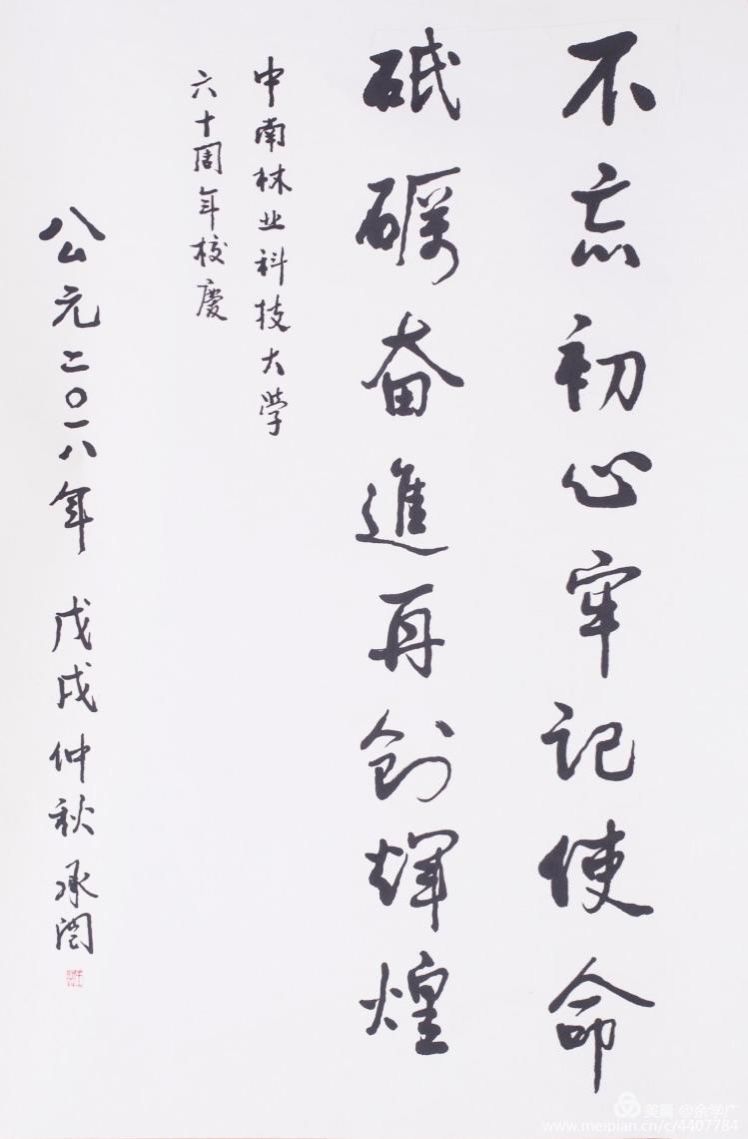 不忘初心牢记使命
砥砺奋進再创辉煌
中南林业科技大学
六十周年校慶
公元二〇一八年 戊戌仲秋 承
美篇 @余学广
www.meipian.cn/c/4407784